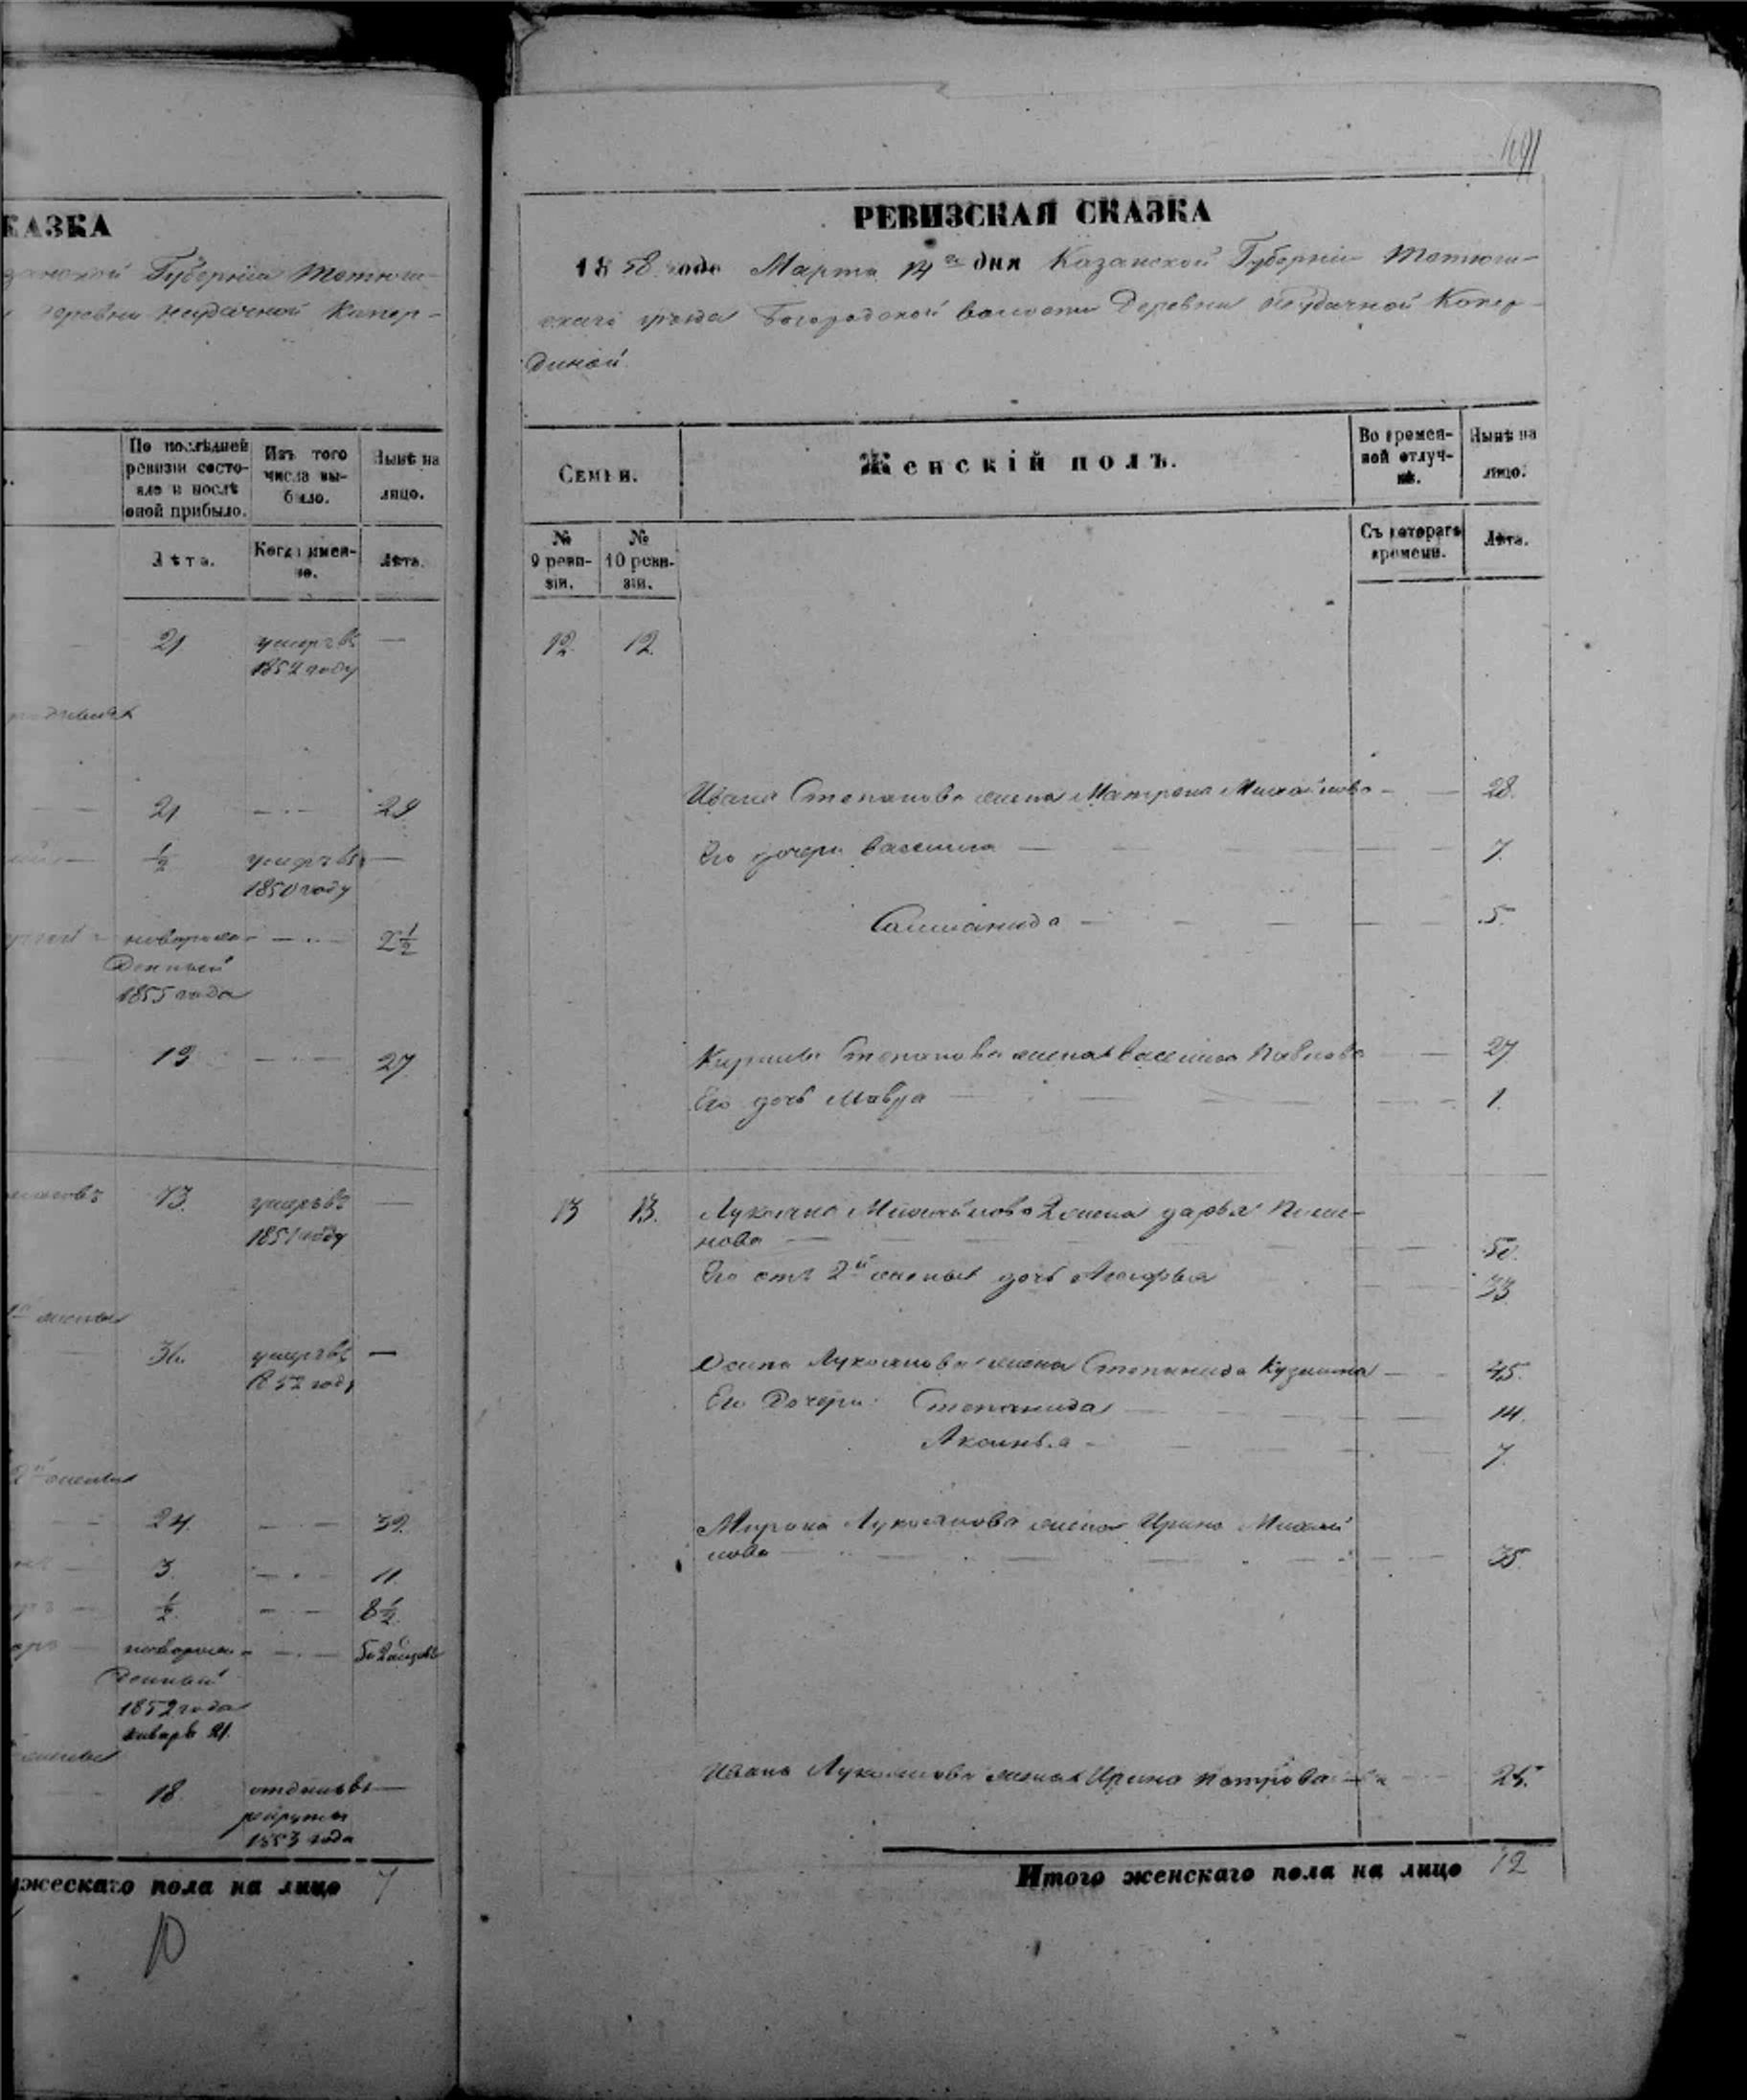 КАЗКА
Губернiи Тетюш-
деревни неудачной Капер-
По послѣдней ревизiи состо-
яло и послѣ
оной прибыло.
Изъ того
числа вы-
было.
Нынѣ на
лицо.
Лѣта.
Когда имен-
но.
Лѣта.
21 умеръ въ —
1854 году
21 — 29
½ умеръ въ —
1850 году
новорож- — 2½
денный
1855 года
19 — 27
73 умеръ въ —
1851 году
36. умеръ въ —
1852 году
2й жены
24. — 32.
3. — 11.
½. — 8½.
новорож- —
денный
1852 года
январь 21.
18. отданъ въ —
рекруты
1853 года
жескаго пола на лицо 7
10
491
РЕВИЗСКАЯ СКАЗКА
1858 года Марта 14го дня Казанской Губернiи Тетюш-
скаго уѣзда Богородской волости Деревни Неудачной Копер-
диной.
Семьи.
Женскiй полъ.
Во времен-
ной отлуч-
кѣ.
Нынѣ на
лицо.
№
9 реви-
зiи.
№
10 реви-
зiи.
Съ котораго
времени.
Лѣта.
12. 12.
Ивана Степанова жена Матрена Михайлова — 28.
Его дочери Василиса — 7.
Соломонида — 5.
Кирила Степанова жена Василиса Павлова — 27
Его дочь Мавра — 1.
13 13. Лукояна Михайлова 2 жена Дарья Пиме-
нова — 50.
Его отъ 2й жены дочь — 33
Осипа Лукоянова жена Степанида Кузмина — 45.
Его Дочери: Степанида — 14.
Аксинья — 7.
Мирона Лукоянова жена Ирина Михай
лова — 35.
Ивана Лукоянова жена Ирина Петрова — 25.
Итого женскаго пола на лицо 12